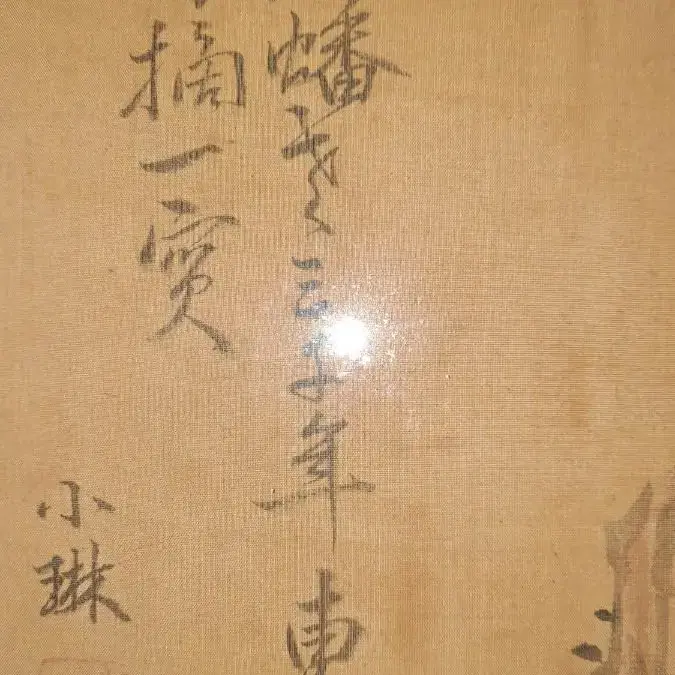 蟠桃三千年東
摘一實
小琳